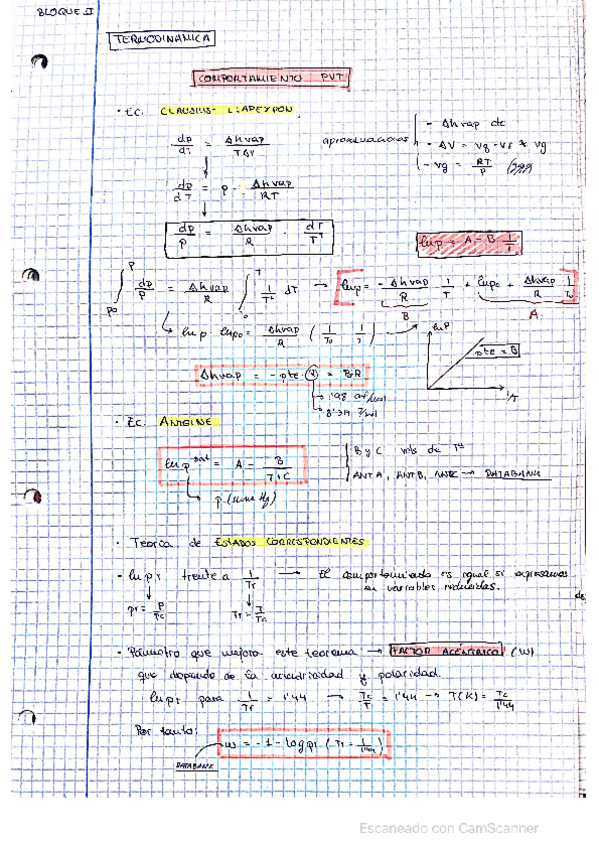 BLOQUE II
TERMODINAMICA
COMPORTAMIENTO PVT
· EC. CLAUSIUS - CLAPEYRON
dp/dT = Δhvap/TΔV
aproximaciones
- Δhvap cte
- ΔV = vg - vl ≈ vg
- vg = RT/P
dp/dT = p · Δhvap/RT
dp/p = Δhvap/R · dT/T²
ln p = A - B 1/T
∫ dp/p = Δhvap/R ∫ 1/T² dT → ln p = - Δhvap/R · 1/T + ln p0 + Δhvap/R 1/T0
B
A
ln p - ln p0 = Δhvap/R ( 1/T0 - 1/T )
ln P
pte = B
1/T
Δhvap = - pte · R = B·R
1'98 cal/mol
8'314 J/mol
· EC. ANTOINE
ln p sat = A - B/T+C
p (mm Hg)
B y C
de T
ANT A, ANT B, ANT C → DATABANK
· Teoría de ESTADOS CORRESPONDIENTES
· ln pr frente a 1/Tr → El comportamiento es igual si expresamos
en variables reducidas.
pr = P/Pc
Tr = T/Tc
· Parámetro que mejora este teorema → FACTOR ACÉNTRICO (w)
que depende de la acentricidad y polaridad.
ln pr para 1/Tr = 1'44 → Tc/T = 1'44 → T(K) = Tc/1'44
Por tanto:
w = -1 - log pr ( Tr = 1/1'44 )
DATABANK
Escaneado con CamScanner